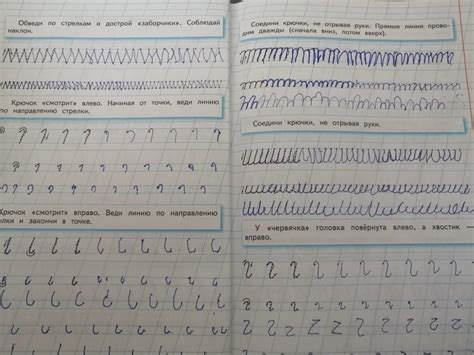 Обведи по стрелкам и дострой «заборчики». Соблюдай
наклон.
Крючок «смотрит» влево. Начиная от точки, веди линию
по направлению стрелки.
Крючок «смотрит» вправо. Веди линию по направлению
елки и закончи в точке.
Соедини крючки, не отрывая руки. Прямые линии прово-
дим дважды (сначала вниз, потом вверх).
Соедини крючки, не отрывая руки.
У «червячка» головка повёрнута влево, а хвостик —
вправо.